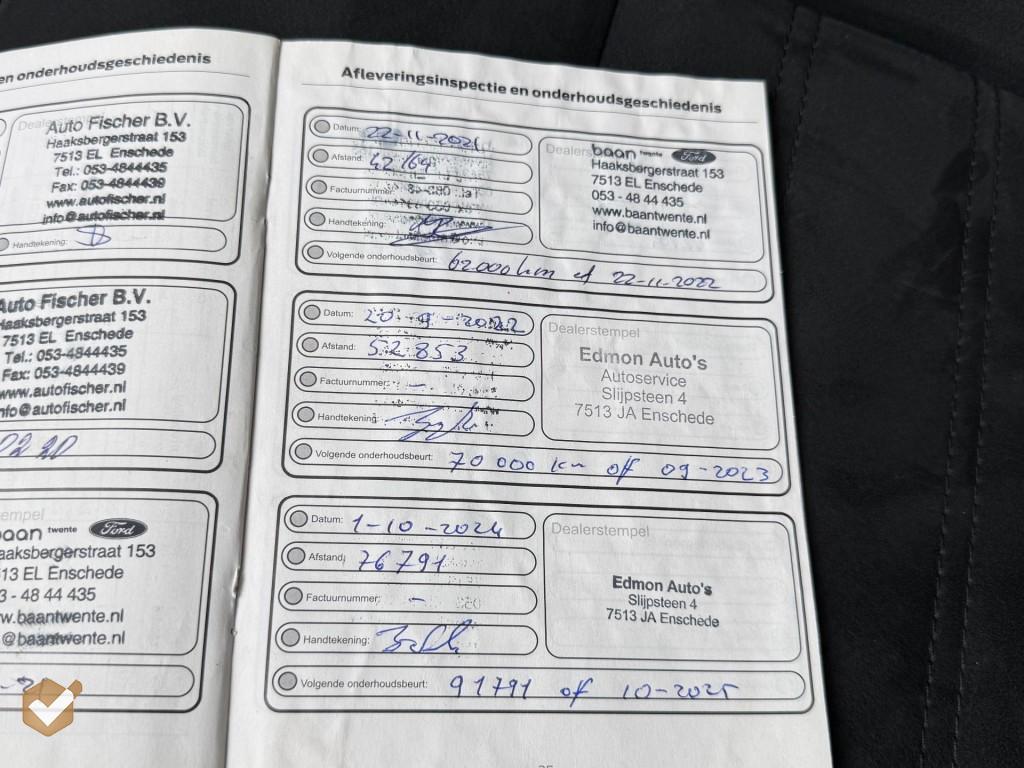 en onderhoudsgeschiedenis
Auto Fischer B.V.
Haaksbergerstraat 153
7513 EL Enschede
Tel.: 053-4844435
Fax: 053-4844439
www.autofischer.nl
info@autofischer.nl
Handtekening:
Auto Fischer B.V.
Haaksbergerstraat 153
7513 EL Enschede
Tel.: 053-4844435
Fax: 053-4844439
www.autofischer.nl
info@autofischer.nl
baan twente Ford
Haaksbergerstraat 153
7513 EL Enschede
053 - 48 44 435
www.baantwente.nl
@baantwente.nl
Afleveringsinspectie en onderhoudsgeschiedenis
Datum: 22-11-2021
Afstand: 42169
Factuurnummer:
Handtekening:
Volgende onderhoudsbeurt: 62000 km of 22-11-2022
Dealers
baan twente Ford
Haaksbergerstraat 153
7513 EL Enschede
053 - 48 44 435
www.baantwente.nl
info@baantwente.nl
Datum: 20-9-2022
Afstand: 52853
Factuurnummer: -
Handtekening:
Volgende onderhoudsbeurt: 70 000 km off 09-2023
Dealerstempel
Edmon Auto's
Autoservice
Slijpsteen 4
7513 JA Enschede
Datum: 1-10-2024
Afstand: 76791
Factuurnummer: -
Handtekening:
Volgende onderhoudsbeurt: 91791 of 10-2025
Dealerstempel
Edmon Auto's
Slijpsteen 4
7513 JA Enschede